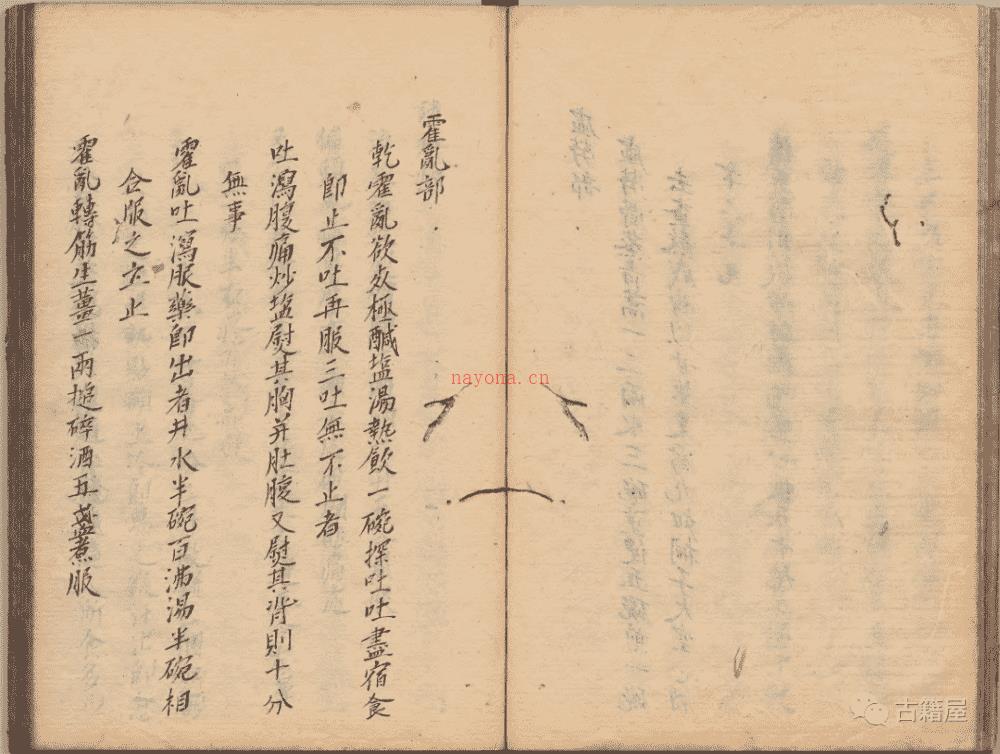 霍亂部
乾霍亂欲死極醎塩湯熱飲一碗探吐吐盡宿食
即止不吐再服三吐無不止者
吐瀉腹痛炒塩熨其胸并肚腹又熨其背則十分
無事
霍亂吐瀉服藥即出者井水半碗百沸湯半碗相
合服之立止
霍亂轉筋生薑一兩搥碎酒五盞煮服
nayona.cn
古籍屋